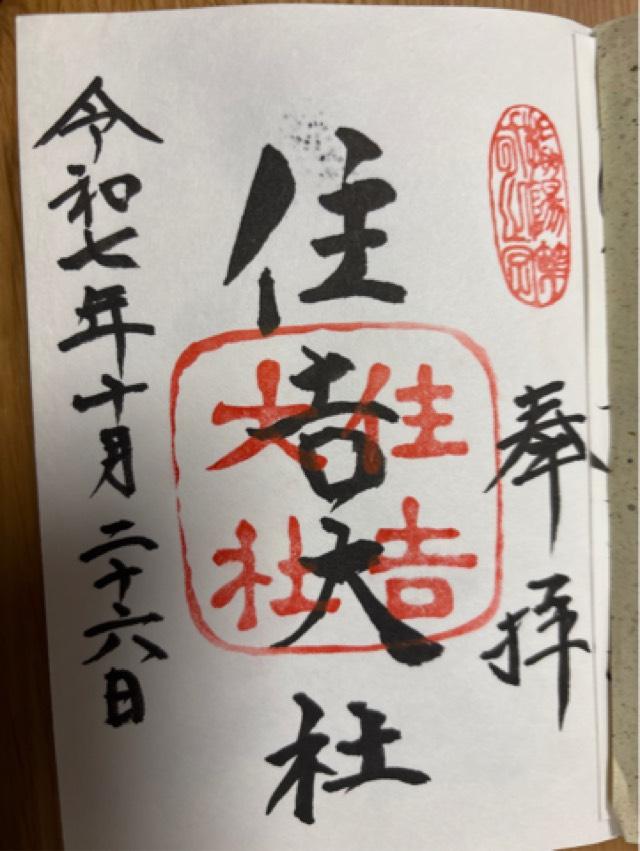 奉拝
住吉大社
住吉
大社
令和七年十月二十六日